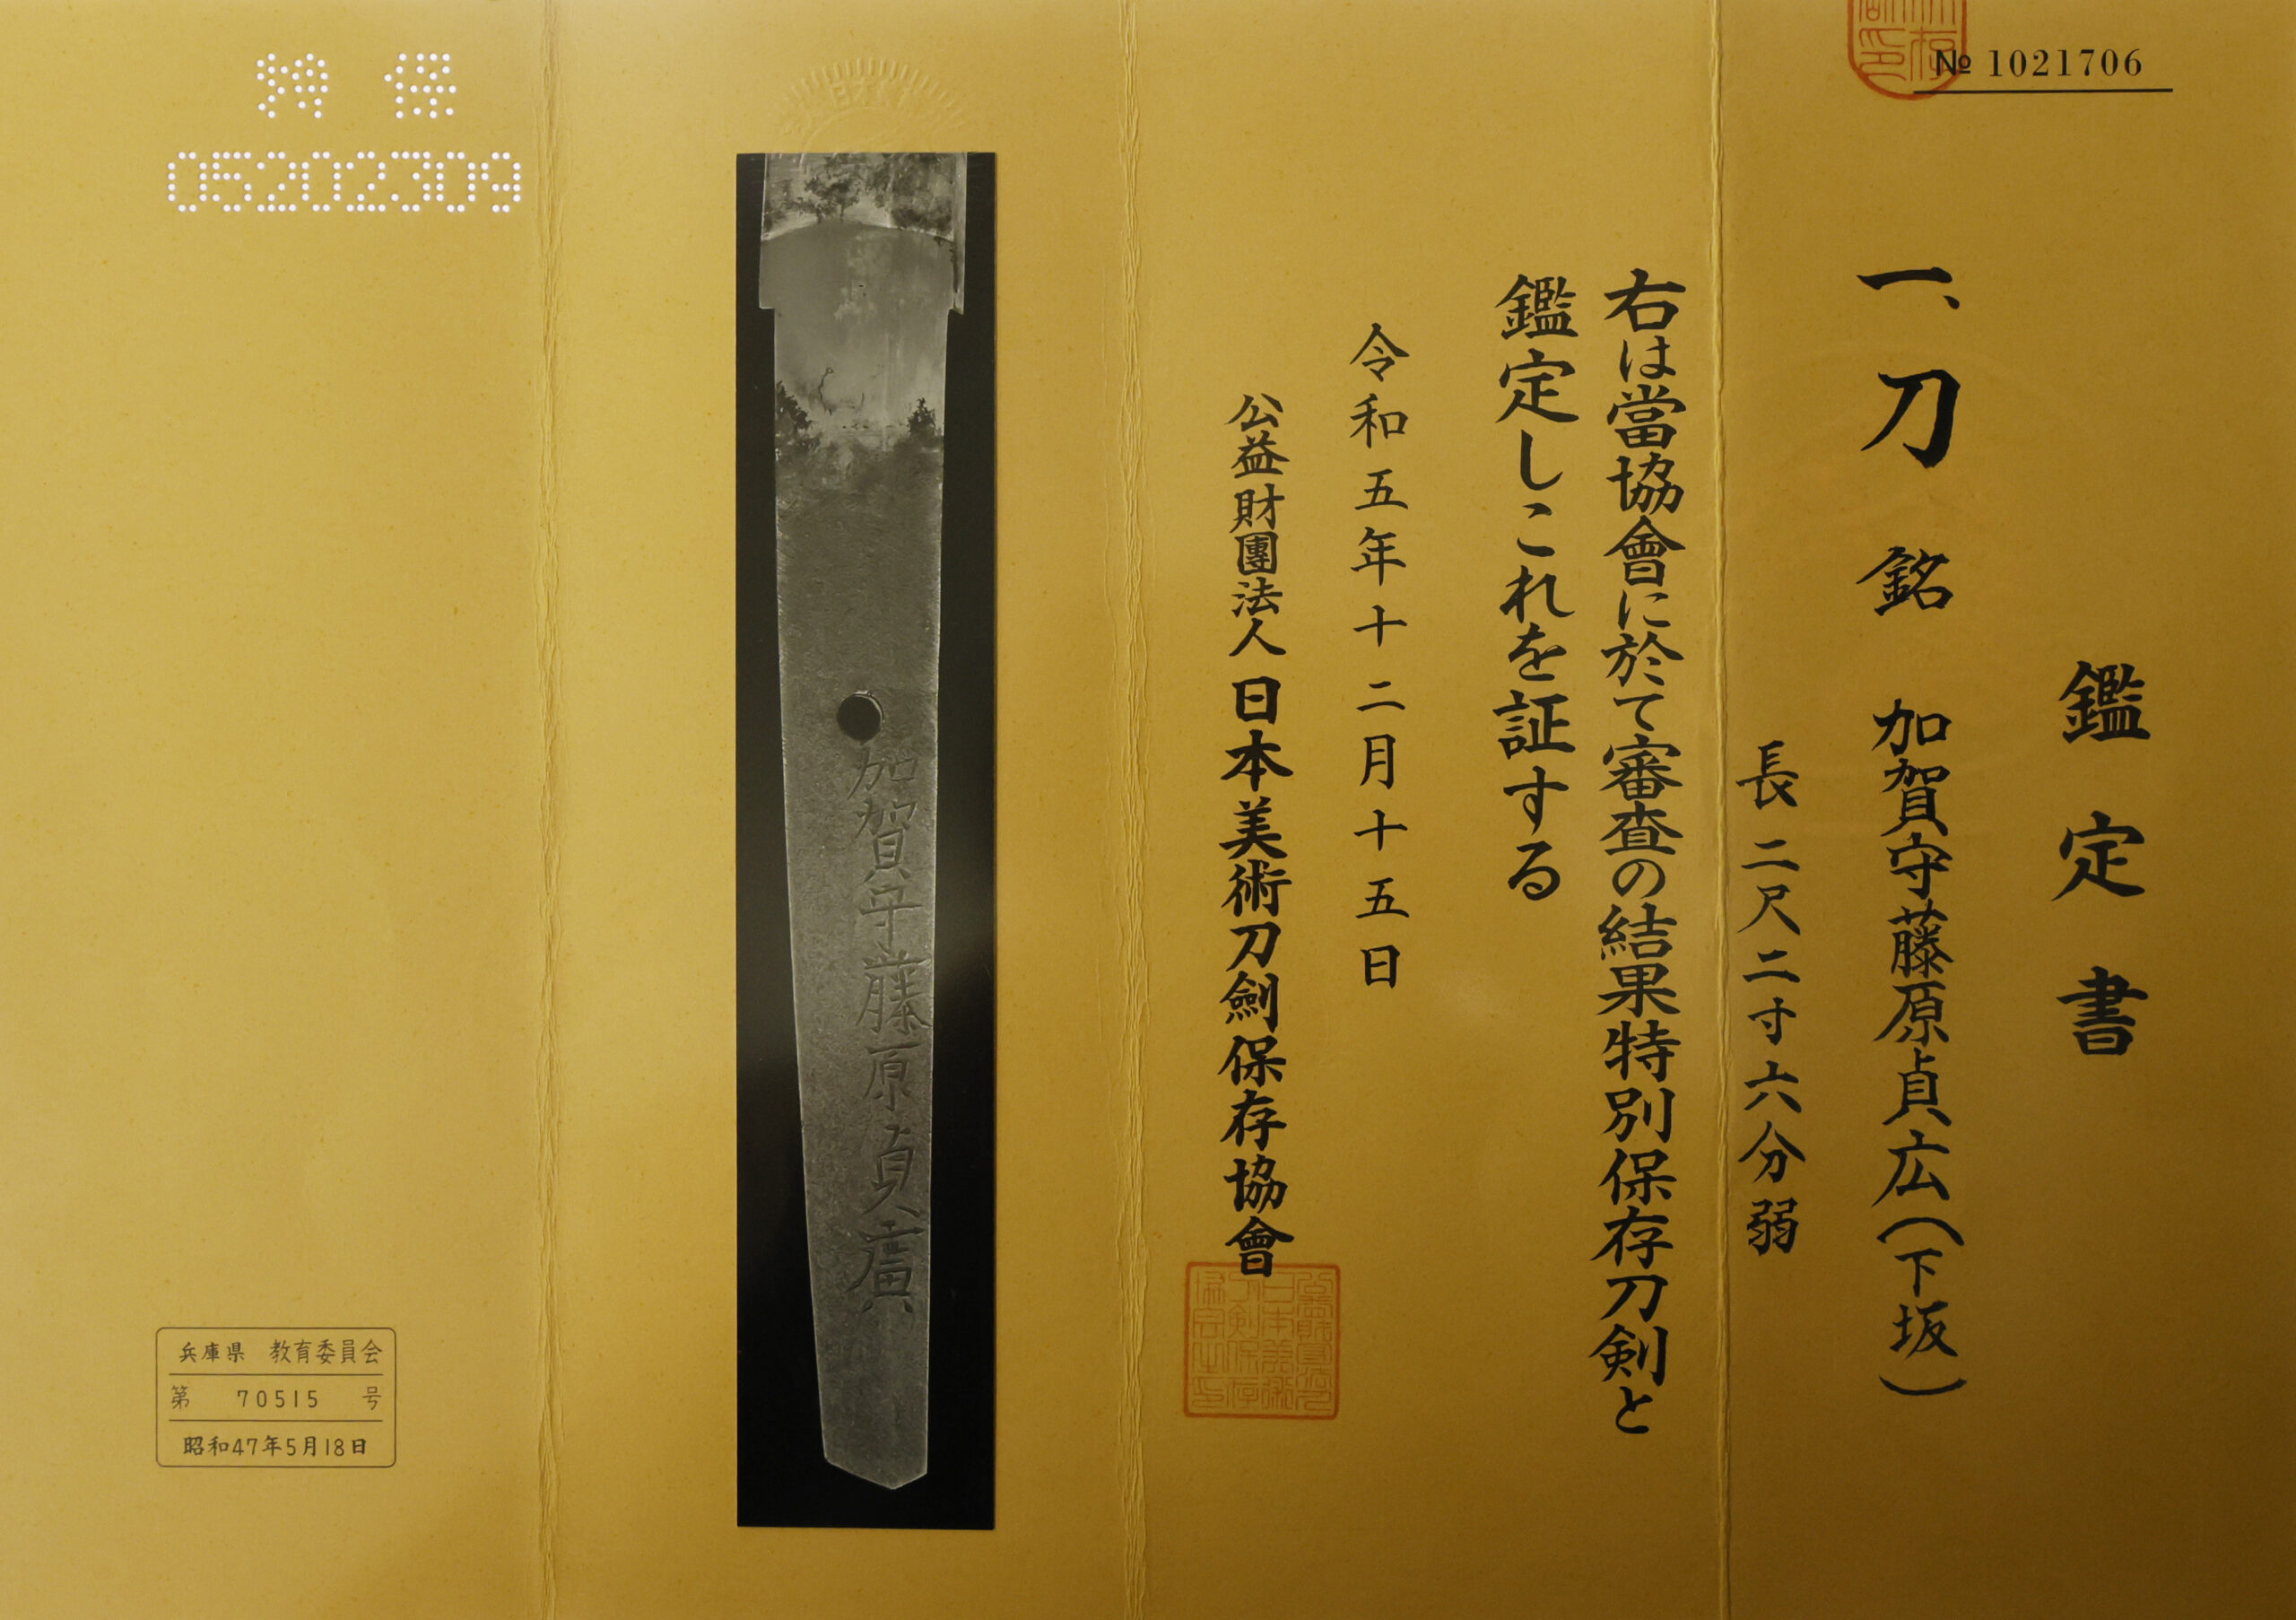 № 1021706
鑑定書
一、刀 銘 加賀守藤原貞広(下坂)
長二尺二寸六分弱
右は當協會に於て審査の結果特別保存刀剣と
鑑定しこれを証する
令和五年十二月十五日
公益財團法人日本美術刀劍保存協會
加賀守藤原貞廣
特保
05202309
兵庫県 教育委員会
第 70515 号
昭和47年5月18日